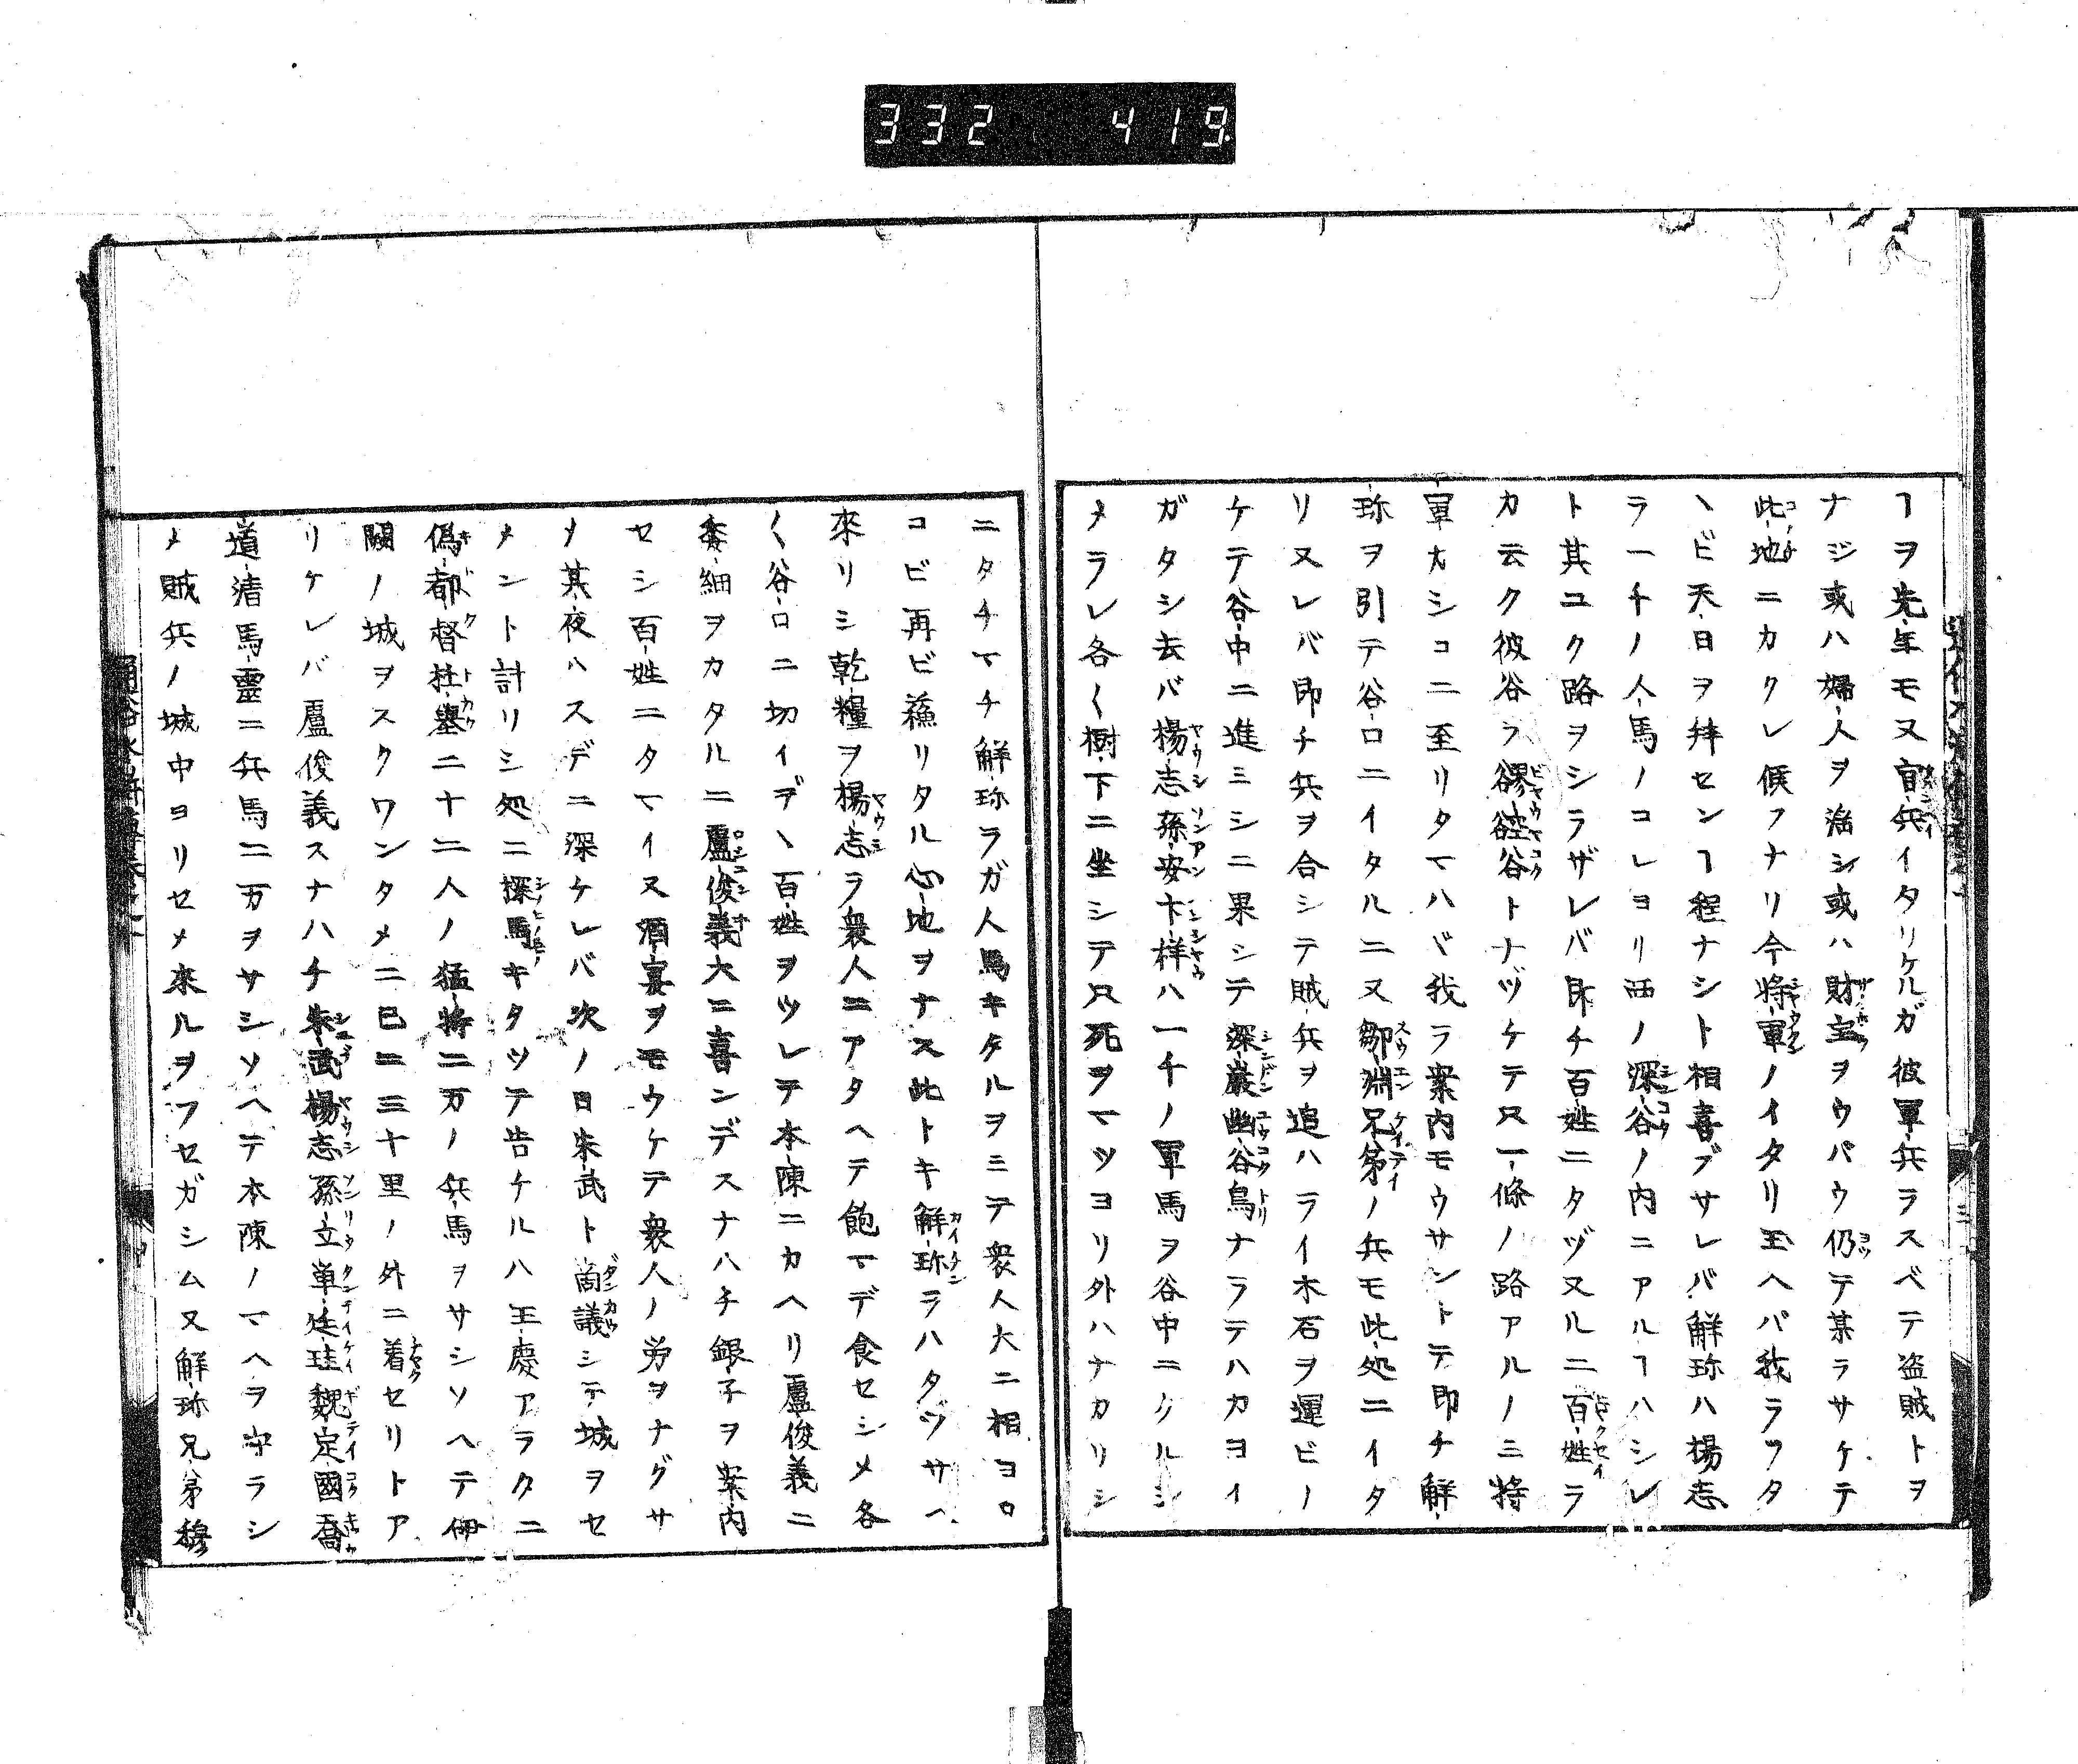 332 419
ヿヲ先年モ又官兵イタリケルガ彼軍兵ラスベテ盗賊トヲ
ナジ或ハ婦人ヲ淊シ或ハ財宝ヲウバウ仍テ某ラサケテ
此地ニカクレ候フナリ今将軍ノイタリ玉ヘバ我ラフタ
ヽビ天日ヲ拝センヿ程ナシト相喜ブサレバ解珎ハ楊志
ラ一チノ人馬ノコレヨリ西ノ深谷ノ内ニアルヿハシレ
ト其ユク路ヲシラザレバ即チ百姓ニタヅヌルニ百姓ラ
カ云ク彼谷ラ谷トナヅケテ只一條ノ路アルノミ将
軍カシコニ至リタマハヾ我ラ案内モウサントテ即チ解
珎ヲ引テ谷口ニイタルニ又鄒淵兄弟ノ兵モ此処ニイタ
リヌレバ即チ兵ヲ合シテ賊兵ヲ追ハライ木石ヲ運ビノ
ケテ谷中ニ進ミシニ果シテ深巖幽谷鳥ナラテハカヨイ
ガタシ去バ楊志孫安卞祥ハ一千ノ軍馬ヲ谷中ニクルシ
メラレ各〱樹下ニ坐シテ只死ヲマツヨリ外ハナカリシ
ニタチマチ解珎ラガ人馬キタルヲミテ衆人大ニ相ヨロ
コビ再ビ蘓リタル心地ヲナス此トキ解珎ラハタヅサヘ
來リシ乾糧ヲ楊志ラ衆人ニアタヘテ飽マデ食セシメ各
〱谷口ニ切イデヽ百姓ヲツレテ本陳ニカヘリ盧俊義ニ
委細ヲカタルニ盧俊義大ニ喜ンデスナハチ銀子ヲ案内
セシ百姓ニタマイ又酒宴ヲモウケテ衆人ノ労ヲナグサ
メ其夜ハスデニ深ケレバ次ノ日朱武ト啇議シテ城ヲセ
メント計リシ処ニ探馬キタツテ告ケルハ王慶アラタニ
偽都督杜壆ニ十二人ノ猛将二万ノ兵馬ヲサシソヘテ伊
闕ノ城ヲスクワンタメニ已ニ三十里ノ外ニ着セリトア
リケレバ盧俊義スナハチ朱武楊志孫立単廷珪魏定國喬
道清馬靈ニ兵馬二万ヲサシソヘテ本陳ノマヘヲ守ラシ
メ賊兵ノ城中ヨリセメ来ルヲフセガシム又解珎兄弟穆